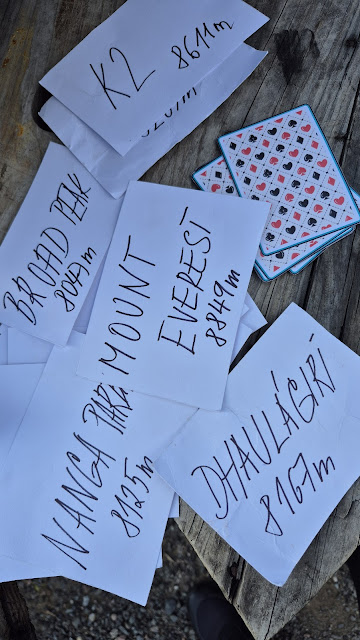 K2
8611m
BROAD PEAK
8047m
MOUNT
EVEREST
8849m
NANGA PAR
8125m
DHAULÁGIRÍ
8167m